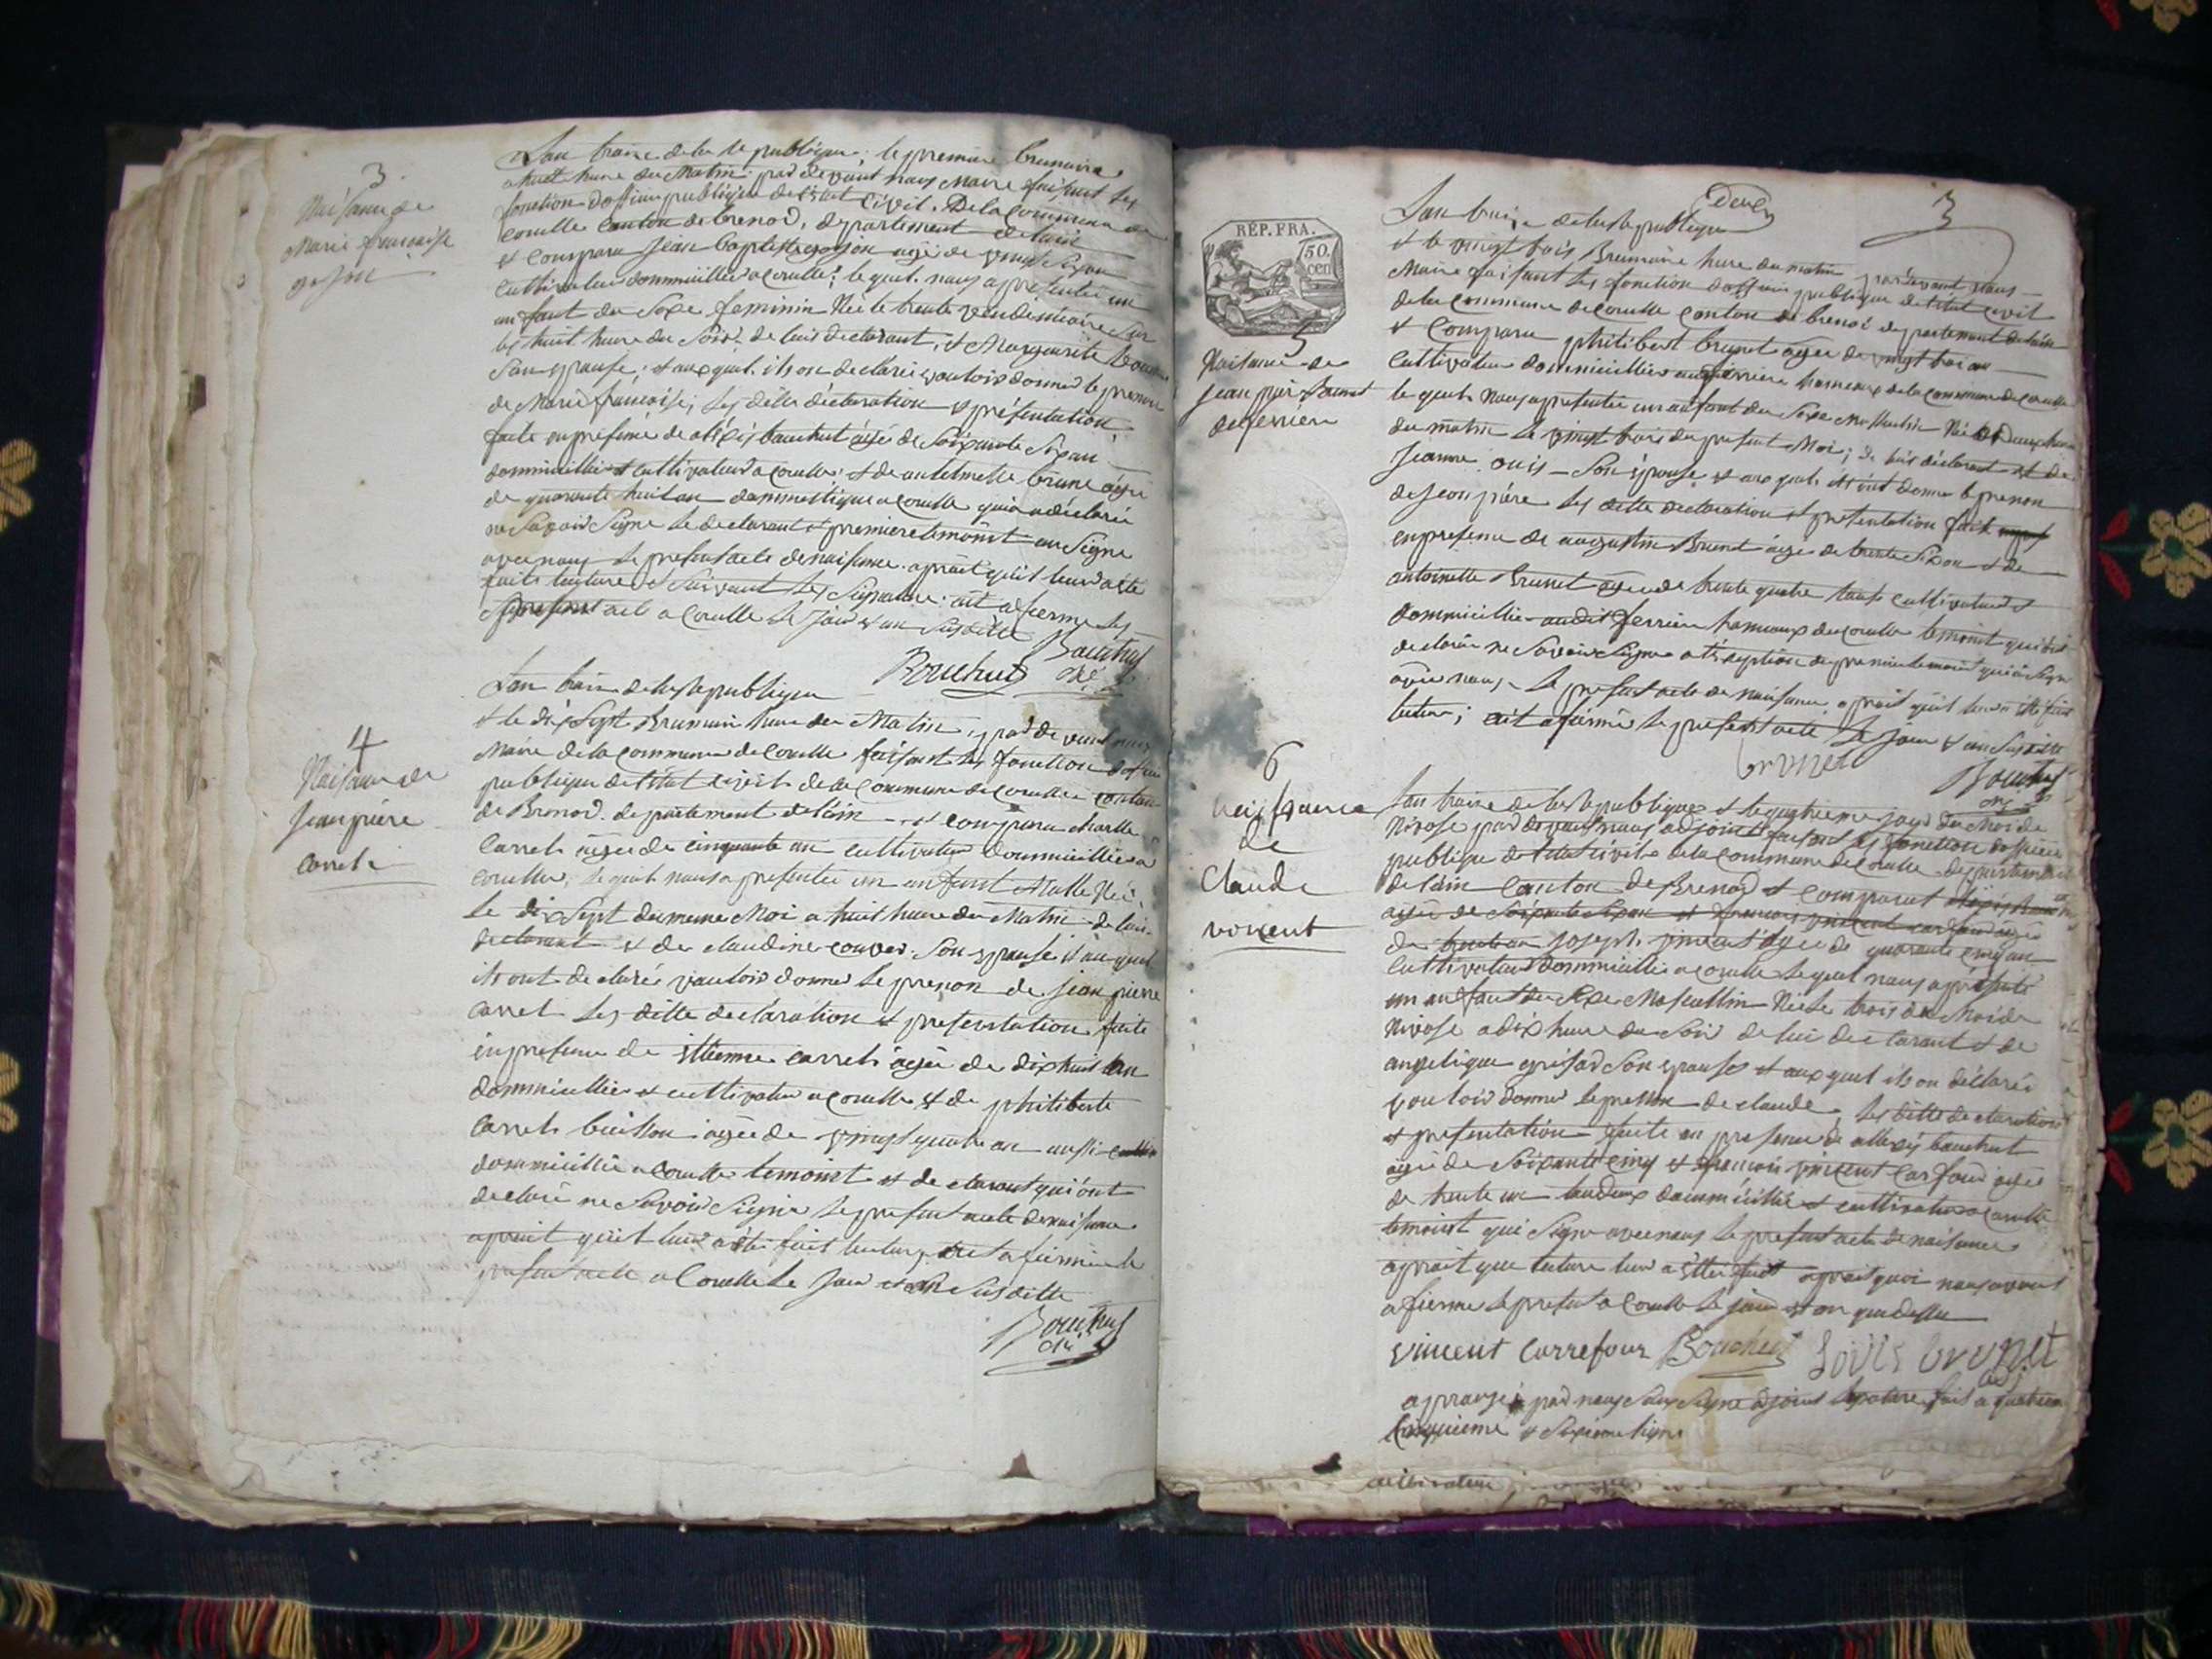 3
Naissance de
Marie françoise
goJon
L'an treize de la republique, le premier brumaire
a huit hure du Matin par devant nous Maire faisant les
fonction dofficier publique de l'état Civil. De la Commune de
corcelle Canton de brenod, departement de lain
et Comparu Jean baptiste goJon agé de vingt Six an
Cultivateur dommicillier a Corcelle; le quel nous a presenté un
anfant du Sexe feminin Née le trente vendemiaire Sur
les huit hure du Soir de lui declarant, et Marguerite
Son epouse; et aux quel ils on declaré vouloir donner le prenom
de Marie françoise; les ditte déclaration et présentation
faite en presence de aléxis bauchut agée de Soixante Six an
dommicillié et cultivateur a Corcelle; et de antelmette brune agée
de quarante huit an dommestique a Corcelle qui a déclaré
ne Savoir Signe le declarant et premiere temoint on Signe
avec nous le present acte de naissance aprait qu'il leur a été
faite lecture et Suivant les Signature ait afferme les
present acte a Corcelle le Jour et an Susditte
Bouchut
4
Naissance de
Jean pierre
Carret
L'an treize de la Republique
et le dix Sept Brumaire hure du Matin, par devant nous
Maire de la commune de Corcelle faisant les fonction dofficier
publique de l'état civil de la Commune de Corcelle Canton
de Brenod departement de l'ain et comparu charle
Carret agée de cinquante an cultivateur dommicillié a
corcelle, le quel nous a presentée un anfant Malle Née
le dix Sept du meme Moi a huit hure du Matin de lui
declarant et de claudine Son epouse et au quel
ils ont declaré vouloir donner le prenon de Jean pierre
Carret les ditte declaration et presentation faite
en presence de ittienne carret agée de dix huit an
dommicillier et cultivateur a Corcelle et de philiberte
Carret buisson agée de vingt quatre an aussi
dommicillié a Corcelle temoint et declarant qui ont
declaré ne Savoir Signe le present acte de naissance
aprait qu'il leur a été fait lecture, ait a fermé le
present acte a Corcelle le Jour et an Susditte
Bouchut
3
RÉP. FRA.
50.
cen
5
Naissance de
Jean piere Brunet
de ferriere
L'an treize de la Republique
et le vingt trois Brumaire hure du matin par devant nous
Maire faisant les fonction dofficier publique de l'état civil
de la Commune de Corcelle Canton de brenod departement de lain
et Comparu philibert brunet agée de vingt trois an
cultivateur dommicillier ferriere hameaux de la commune de Corcelle
le quel nous a presentée un anfant du Sexe Masculin Née
du matin le vingt trois du present Moi; de lui déclarant et de
Jeanne ouis Son épouse et aux quel ils ont donner le prenon
de Jean pière les ditte declaration et presentation fait
en presence de augustin Brunet agée de trente Six an et de
antoinette Brunet agée de trente quatre tous cultivateur et
dommicillie audit ferriere hameaux de Corcelle temoint qui ont
declarée ne Savoir Signe a l'exeption du premier temoint qui a Signe
avec nous le present acte de naissance aprait qu'il leur a été fait
lecture; ait afermée le present acte le Jour et an Susditte
brunet
Bouchut
6
naissance
de
Claude
vincent
L'an treize de la Republique et le quatrieme jour du Moi de
Nivose par devant nous adjoint faisant les fonction dofficier
publique de l'état civil de la Commune de Corcelle departement
de lain Canton de Brenod et comparut
agée de Soixante Six an et francois vincent carfour agée
de trente an Joseph vincent agée de quarante cinq an
Cultivateur dommicillié a Corcelle le quel nous a présenté
un anfant du Sexe Mascullin Née le trois du Moi de
Nivose a dix hure du Soir de lui declarant et de
angelique grisard Son epouse et aux quel ils on déclarée
vouloir donner le prenon de claude, les ditte declaration
et presentation faite en presence de allexis bauchut
agée de Soixante cinq et francois vincent Carfour agée
de trente un tous deux dommicillié et cultivateur a Corcelle
temoint qui Signe avec nous le present acte de naissance
aprait que lecture leur a été fait aprait quoi nous avons
afferme le present a Corcelle le jour et an que dessu
vincent Carrefour Bouchut Louis brunet
aprouvé par nous Sous Signe adjoint la rature fait a quatrieme
Cinquieme et Sixieme ligne